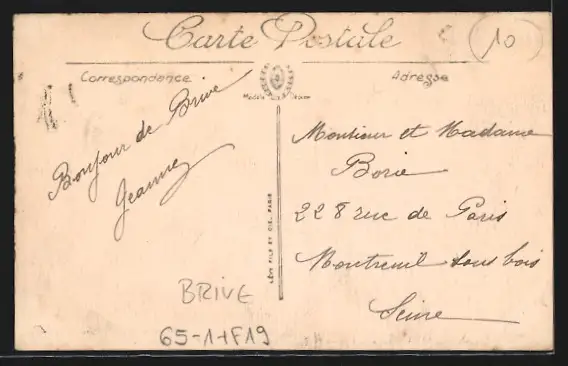 Carte Postale
10
Correspondance
Adresse
Bonjour de Brive
Jeanne
Monsieur et Madame
Borie
228 rue de Paris
Montreuil sous bois
Seine
LÉVY FILS ET CIE, PARIS
BRIVE
65-1-1F19